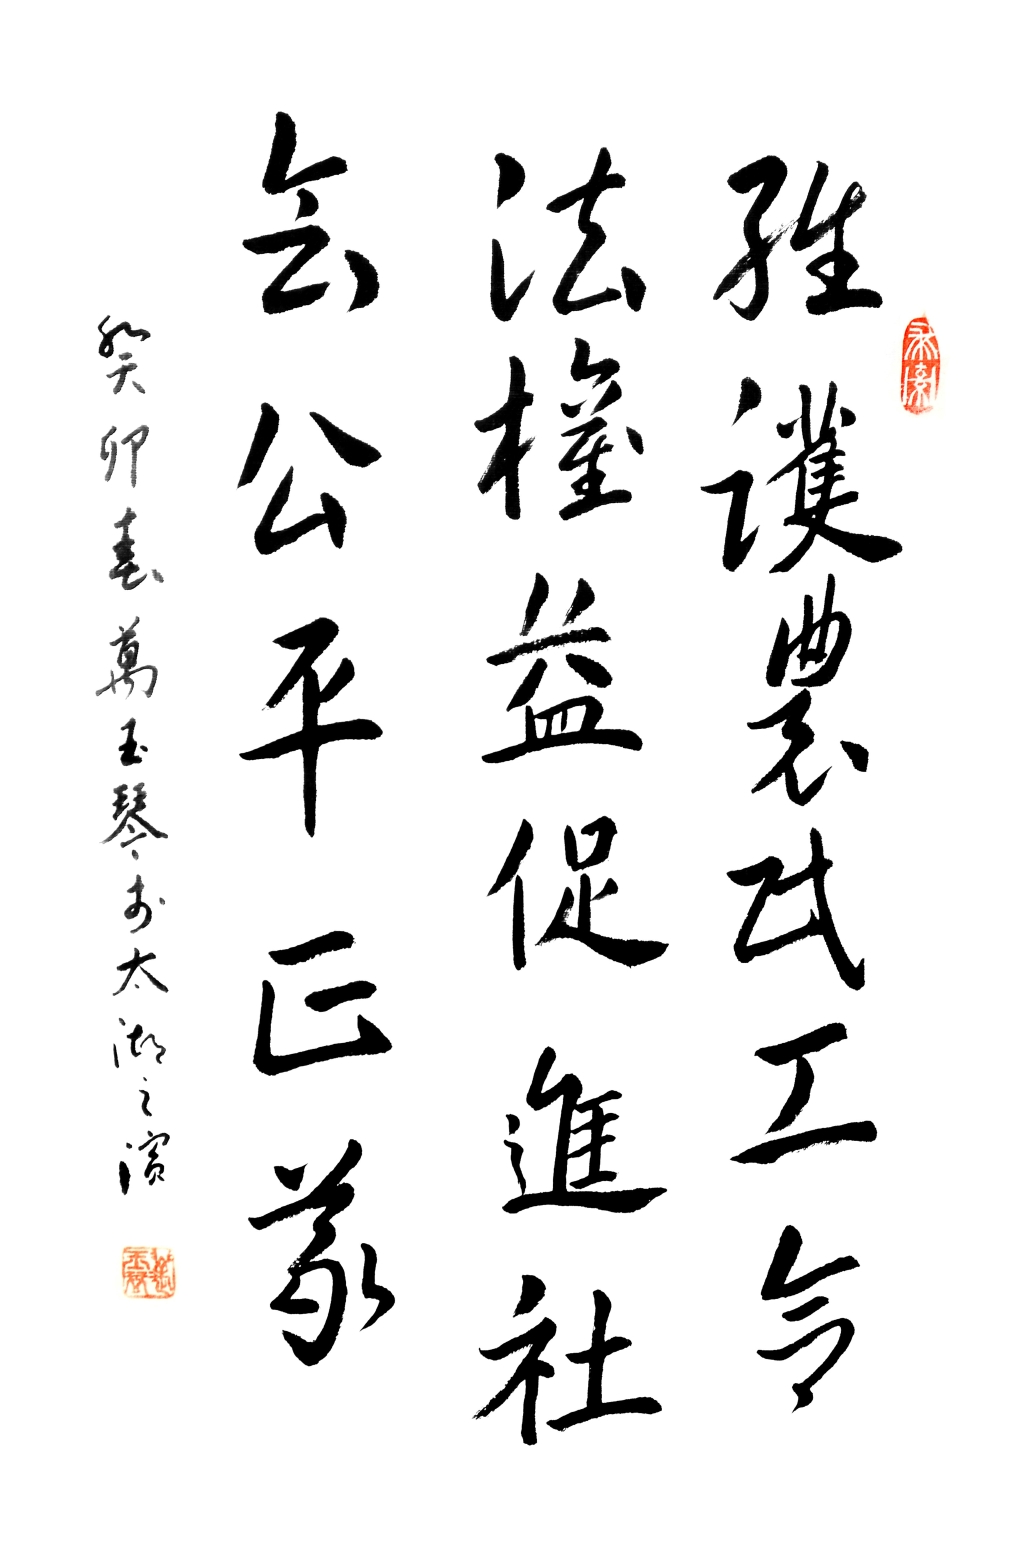 維護農民工合
法權益促進社
会公平正義
癸卯春萬玉琴於太湖之濱